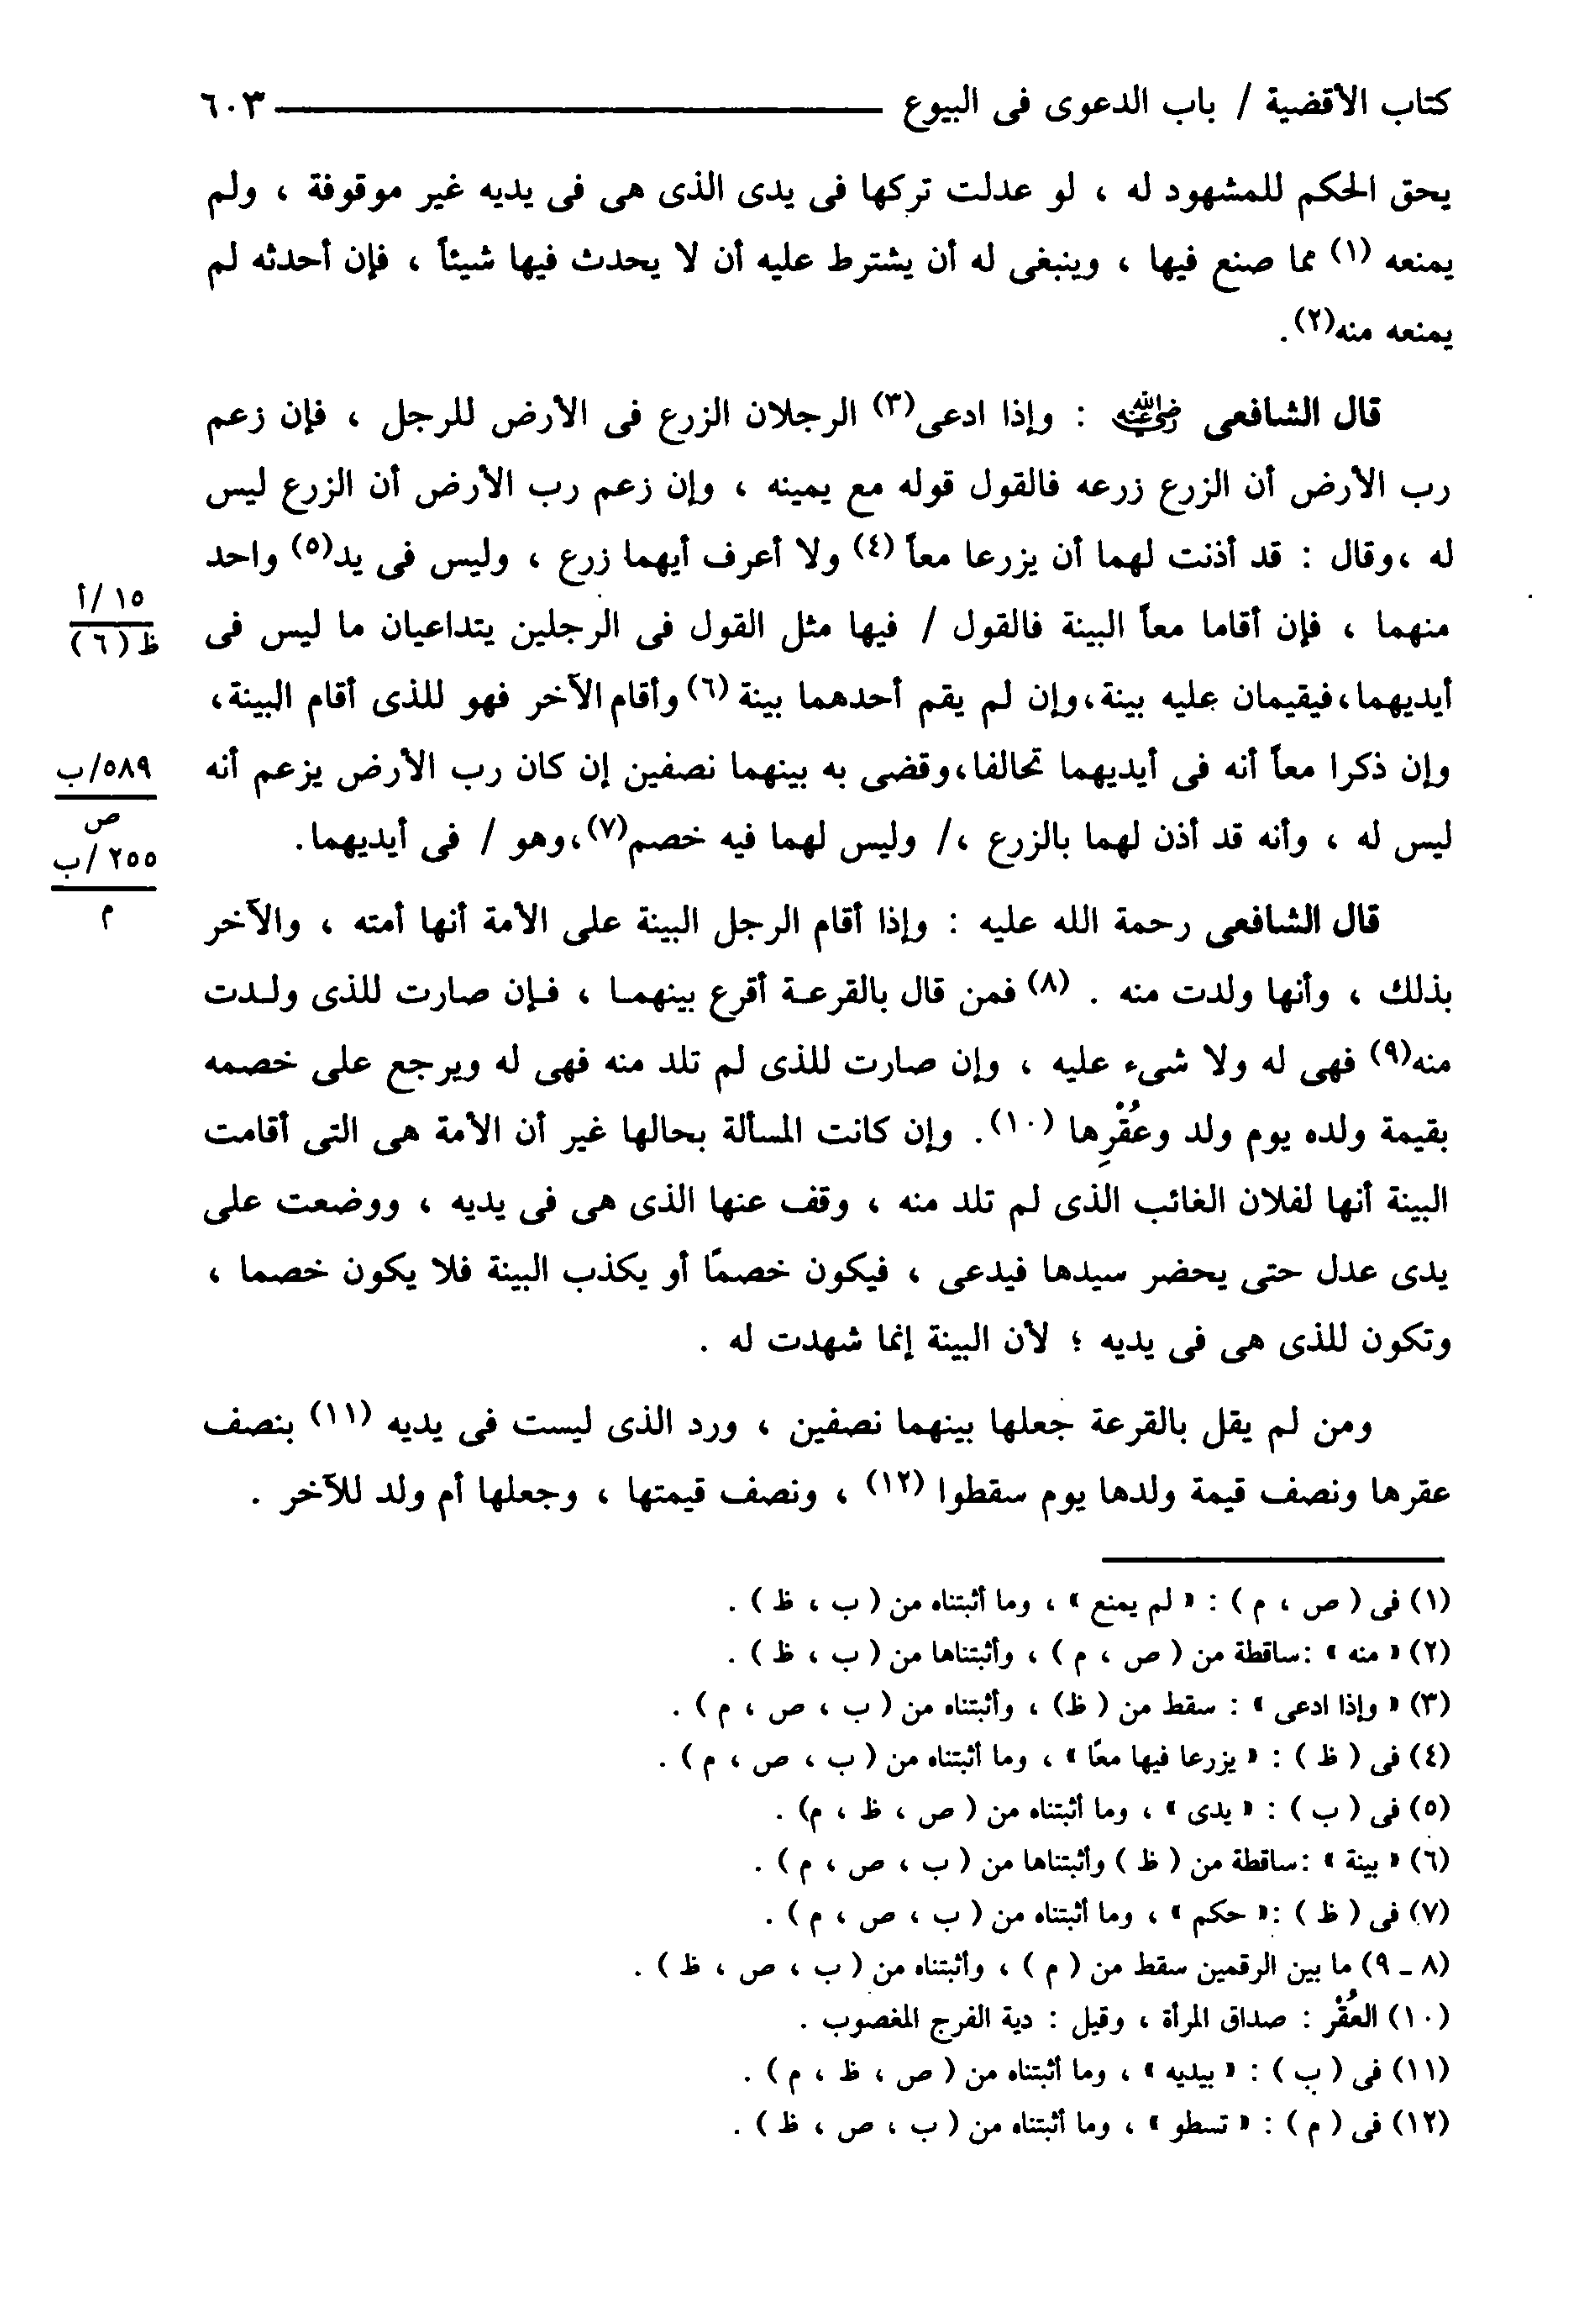 كتاب الأقضية / باب الدعوى فى البيوع ـــــــــ ٦٠٣
يحق الحكم للمشهود له ، لو عدلت تركها فى يدى الذى هى فى يديه غير موقوفة ، ولم
يمنعه (١) مما صنع فيها ، وينبغى له أن يشترط عليه أن لا يحدث فيها شيئاً ، فإن أحدثه لم
يمنعه منه(٢).
قال الشافعى رضي الله عنه : وإذا ادعى(٣) الرجلان الزرع فى الأرض للرجل ، فإن زعم
رب الأرض أن الزرع زرعه فالقول قوله مع يمينه ، وإن زعم رب الأرض أن الزرع ليس
له ،وقال : قد أذنت لهما أن يزرعا معاً (٤) ولا أعرف أيهما زرع ، وليس فى يد(٥) واحد
١٥ /أ
ظ (٦)
منهما ، فإن أقاما معاً البينة فالقول / فيها مثل القول فى الرجلين يتداعيان ما ليس فى
أيديهما،فيقيمان عليه بينة،وإن لم يقم أحدهما بينة (٦) وأقام الآخر فهو للذى أقام البينة،
٥٨٩/ب
ص
وإن ذكرا معاً أنه فى أيديهما تحالفا،وقضى به بينهما نصفين إن كان رب الأرض يزعم أنه
٢٥٥ /ب
م
ليس له ، وأنه قد أذن لهما بالزرع ،/ وليس لهما فيه خصم(٧)،وهو / فى أيديهما.
قال الشافعى رحمة الله عليه : وإذا أقام الرجل البينة على الأمة أنها أمته ، والآخر
بذلك ، وأنها ولدت منه . (٨) فمن قال بالقرعـة أقرع بينهمـا ، فـإن صارت للذى ولـدت
منه(٩) فهى له ولا شىء عليه ، وإن صارت للذى لم تلد منه فهى له ويرجع على خصمه
بقيمة ولده يوم ولد وعُقْرِها (١٠). وإن كانت المسألة بحالها غير أن الأمة هى التى أقامت
البينة أنها لفلان الغائب الذى لم تلد منه ، وقف عنها الذى هى فى يديه ، ووضعت على
يدى عدل حتى يحضر سيدها فيدعى ، فيكون خصمًا أو يكذب البينة فلا يكون خصما ،
وتكون للذى هى فى يديه ؛ لأن البينة إنما شهدت له .
ومن لم يقل بالقرعة جعلها بينهما نصفين ، ورد الذى ليست فى يديه (١١) بنصف
عقرها ونصف قيمة ولدها يوم سقطوا (١٢) ، ونصف قيمتها ، وجعلها أم ولد للآخر .
(١) فى ( ص ، م ) : « لم يمنع » ، وما أثبتناه من ( ب ، ظ ) .
(٢) « منه » :ساقطة من ( ص ، م ) ، وأثبتناها من ( ب ، ظ ) .
(٣) « وإذا ادعى » : سقط من ( ظ) ، وأثبتناه من ( ب ، ص ، م ) .
(٤) فى ( ظ ) : « يزرعا فيها معًا » ، وما أثبتناه من ( ب ، ص ، م ) .
(٥) فى ( ب ) : « يدى » ، وما أثبتناه من ( ص ، ظ ، م) .
(٦) « بينة » :ساقطة من ( ظ ) وأثبتناها من ( ب ، ص ، م ) .
(٧) فى ( ظ ) :« حكم » ، وما أثبتناه من ( ب ، ص ، م ) .
(٨ ـ ٩) ما بين الرقمين سقط من ( م ) ، وأثبتناه من ( ب ، ص ، ظ ) .
(١٠) العُقْر : صداق المرأة ، وقيل : دية الفرج المغصوب .
(١١) فى ( ب ) : « بيديه » ، وما أثبتناه من ( ص ، ظ ، م ) .
(١٢) فى ( م ) : « تسطو » ، وما أثبتناه من ( ب ، ص ، ظ ) .